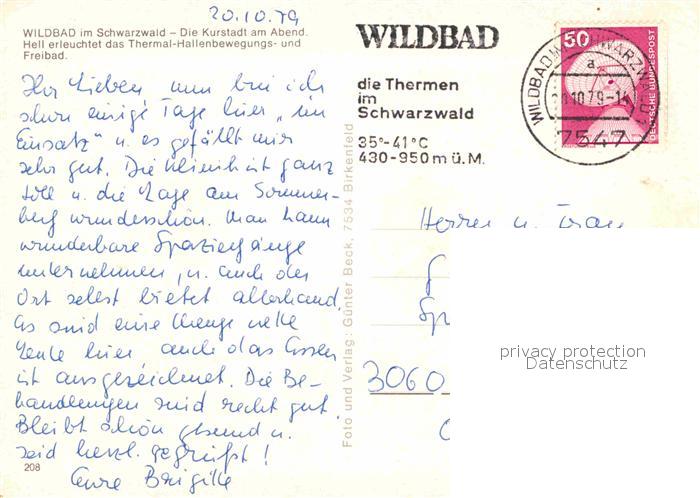 20.10.79
WILDBAD im Schwarzwald – Die Kurstadt am Abend.
Hell erleuchtet das Thermal-Hallenbewegungs- und
Freibad.
Ihr Lieben nun bin ich
schon einige Tage hier „im
Einsatz“ u. es gefällt mir
sehr gut. Die Klinik ist ganz
toll u. die Lage am Sommer-
berg wunderschön. Man kann
wunderbare Spaziergänge
unternehmen, u. auch der
Ort selbst bietet allerhand.
Es sind eine Menge nette
Leute hier, auch das Essen
ist ausgezeichnet. Die Be-
handlungen sind recht gut.
Bleibt schön gesund u.
seid herzl. gegrüßt!
Eure Brigitte
208
Foto und Verlag: Günter Beck, 7534 Birkenfeld
WILDBAD
die Thermen
im
Schwarzwald
35°-41°C
430-950m ü.M.
WILDBAD IM SCHWARZWALD
a
10.79-1
7547
50
DEUTSCHE BUNDESPOST
Herrn u. Frau
3060
privacy protection
Datenschutz